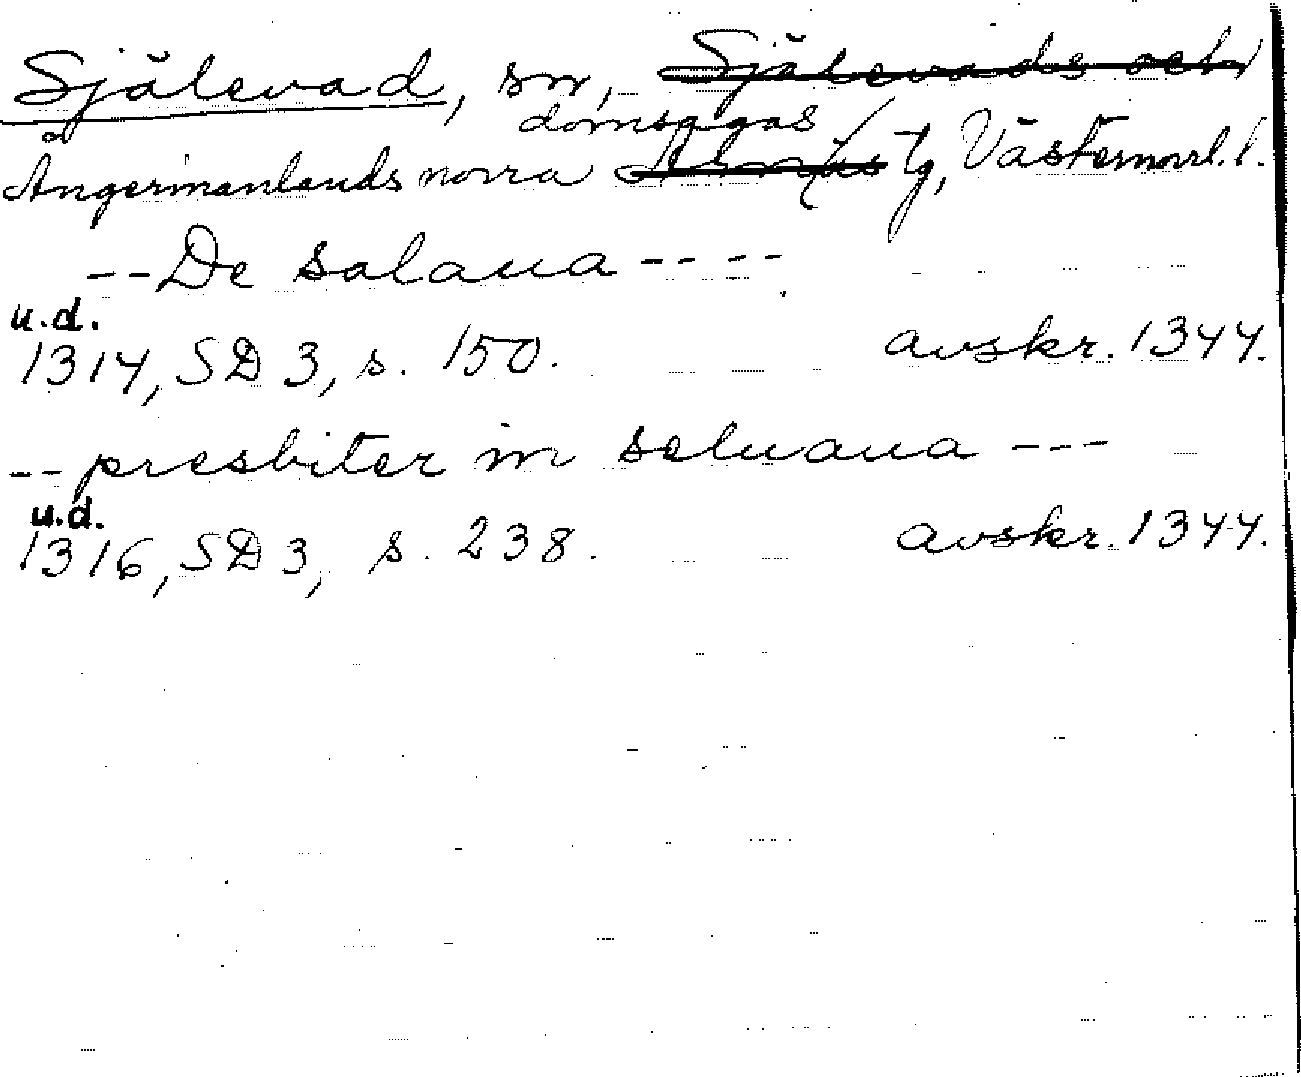 Själevad, sn, Själevads och
domsagas
Ångermanlands norra tg, Västernorrl. l.
--De salaua----
u.d.
1314, SD 3, s. 150. avskr. 1344.
--presbiter in seluaua---
u.d.
1316, SD 3, s. 238. avskr. 1344.